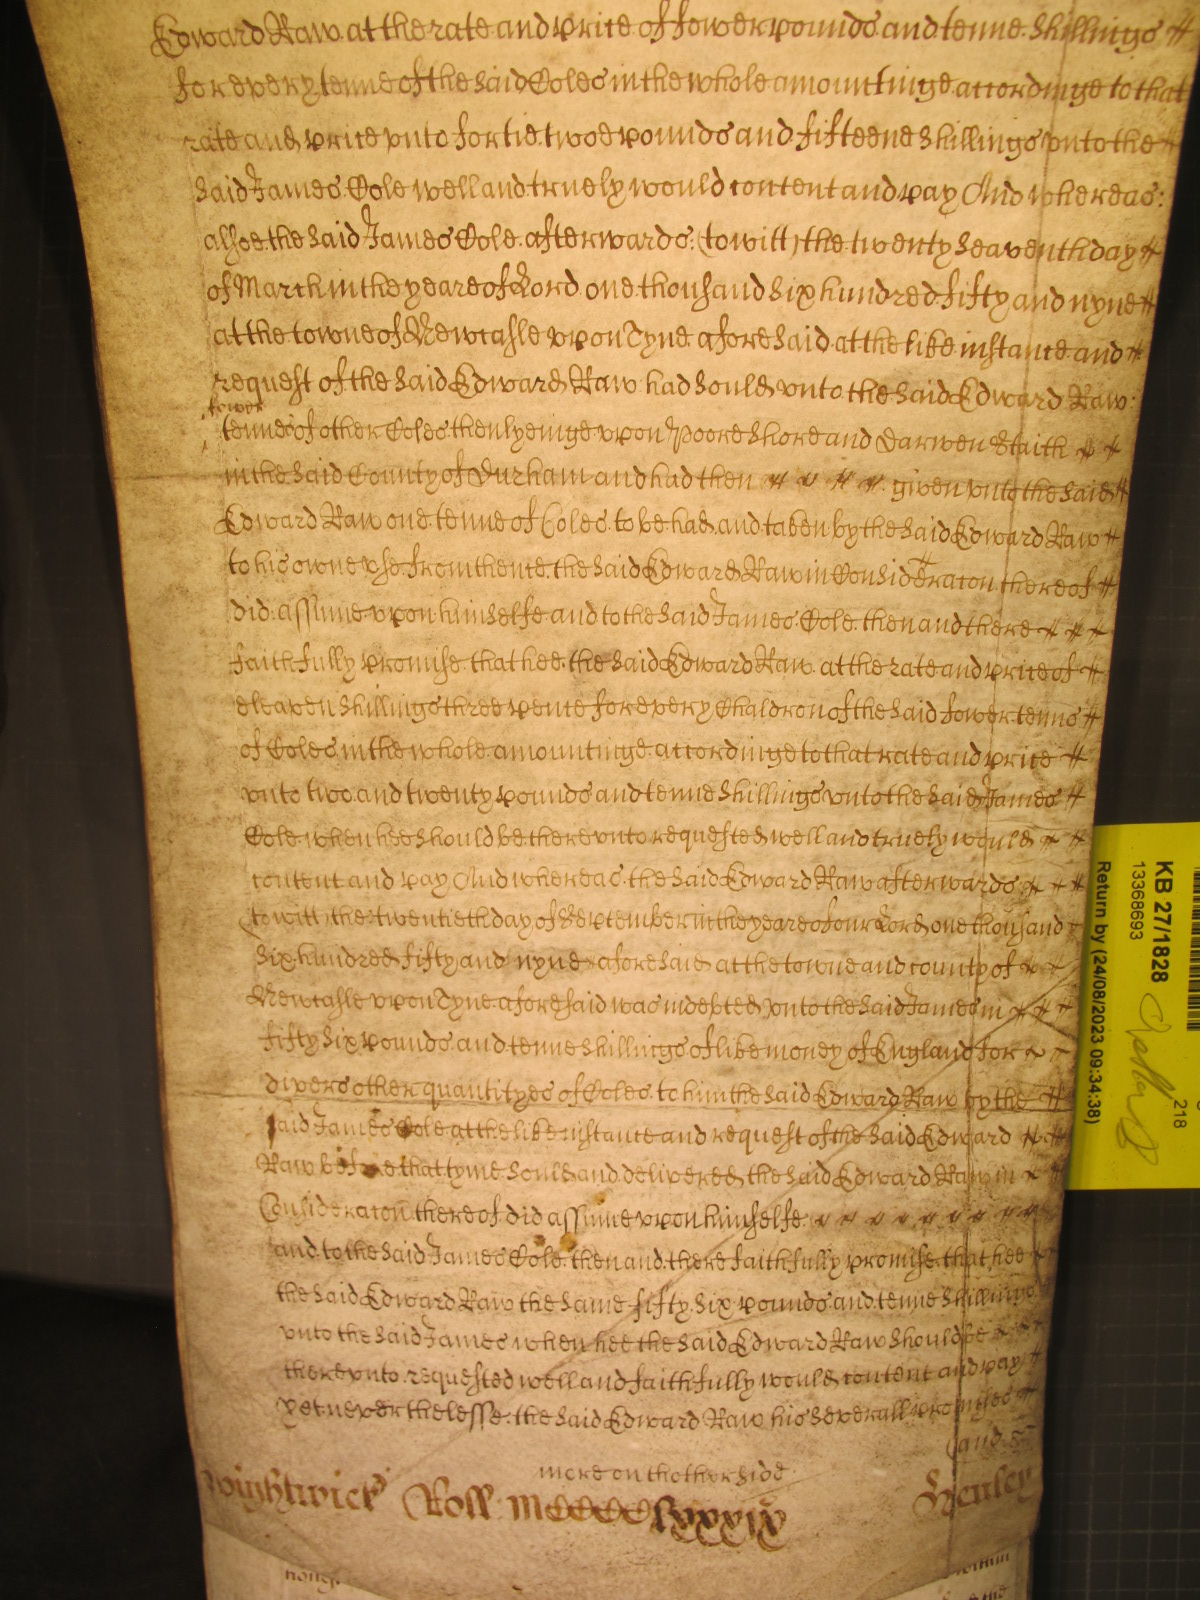 Edward Raw at the rate and price of fower pounds and tenne shillings
for every tenne of the said Coles in the whole amountinge accordinge to that
rate and price vnto fortie twoe pounds and fifteene shillings vnto the
said James Cole well and truely would content and pay And whereas
alsoe the said James Cole afterwards (to witt) the twenty seaventh day
of March in the yeare of Lord one thousand six hundred fifty and nyne
at the towne of Newcastle vpon Tyne aforesaid at the like instance and
request of the said Edward Raw had sould vnto the said Edward Raw
fower
tennes of other Coles then lyeinge vpon Poore Shore and Darwen Staith
in the said County of Durham and had then given vnto the said
Edward Raw one tenne of Coles to be had and taken by the said Edward Raw
to his owne vse from thence the said Edward Raw in Consideracon thereof
did assume vpon himselfe and to the said James Cole then and there
faithfully promise that hee the said Edward Raw at the rate and price of
eleaven shillings three pence for every Chaldron of the said fower tenns
of Coles in the whole amountinge accordinge to that rate and price
vnto two and twenty pounds and tenne shillings vnto the said James
Cole when hee should be therevnto requested well and truely would
content and pay And whereas the said Edward Raw afterwards
(to witt) the twentieth day of September in the yeare of our Lord one thousand
six hundred fifty and nyne aforesaid at the towne and county of
Newcastle vpon Tyne aforesaid was indebted vnto the said James in
fifty six pounds and tenne shillings of like money of England for
divers other quantityes of Coles to him the said Edward Raw by the
said James Cole at the like instance and request of the said Edward
Raw before that tyme sould and delivered the said Edward Raw in
Consideracon thereof did assume vpon himselfe
and to the said James Cole then and there faithfully promise that hee
the said Edward Raw the same fifty six pounds and tenne shillings
vnto the said James when hee the said Edward Raw should be
therevnto requested well and faithfully would content and pay
yet neverthelesse the said Edward Raw his severall promises
(and
more on thother side
Wightwick Roll MCCCClxxxix Henley
KB 27/1828
13368693
218
Return by (24/08/2023 09:34:38)